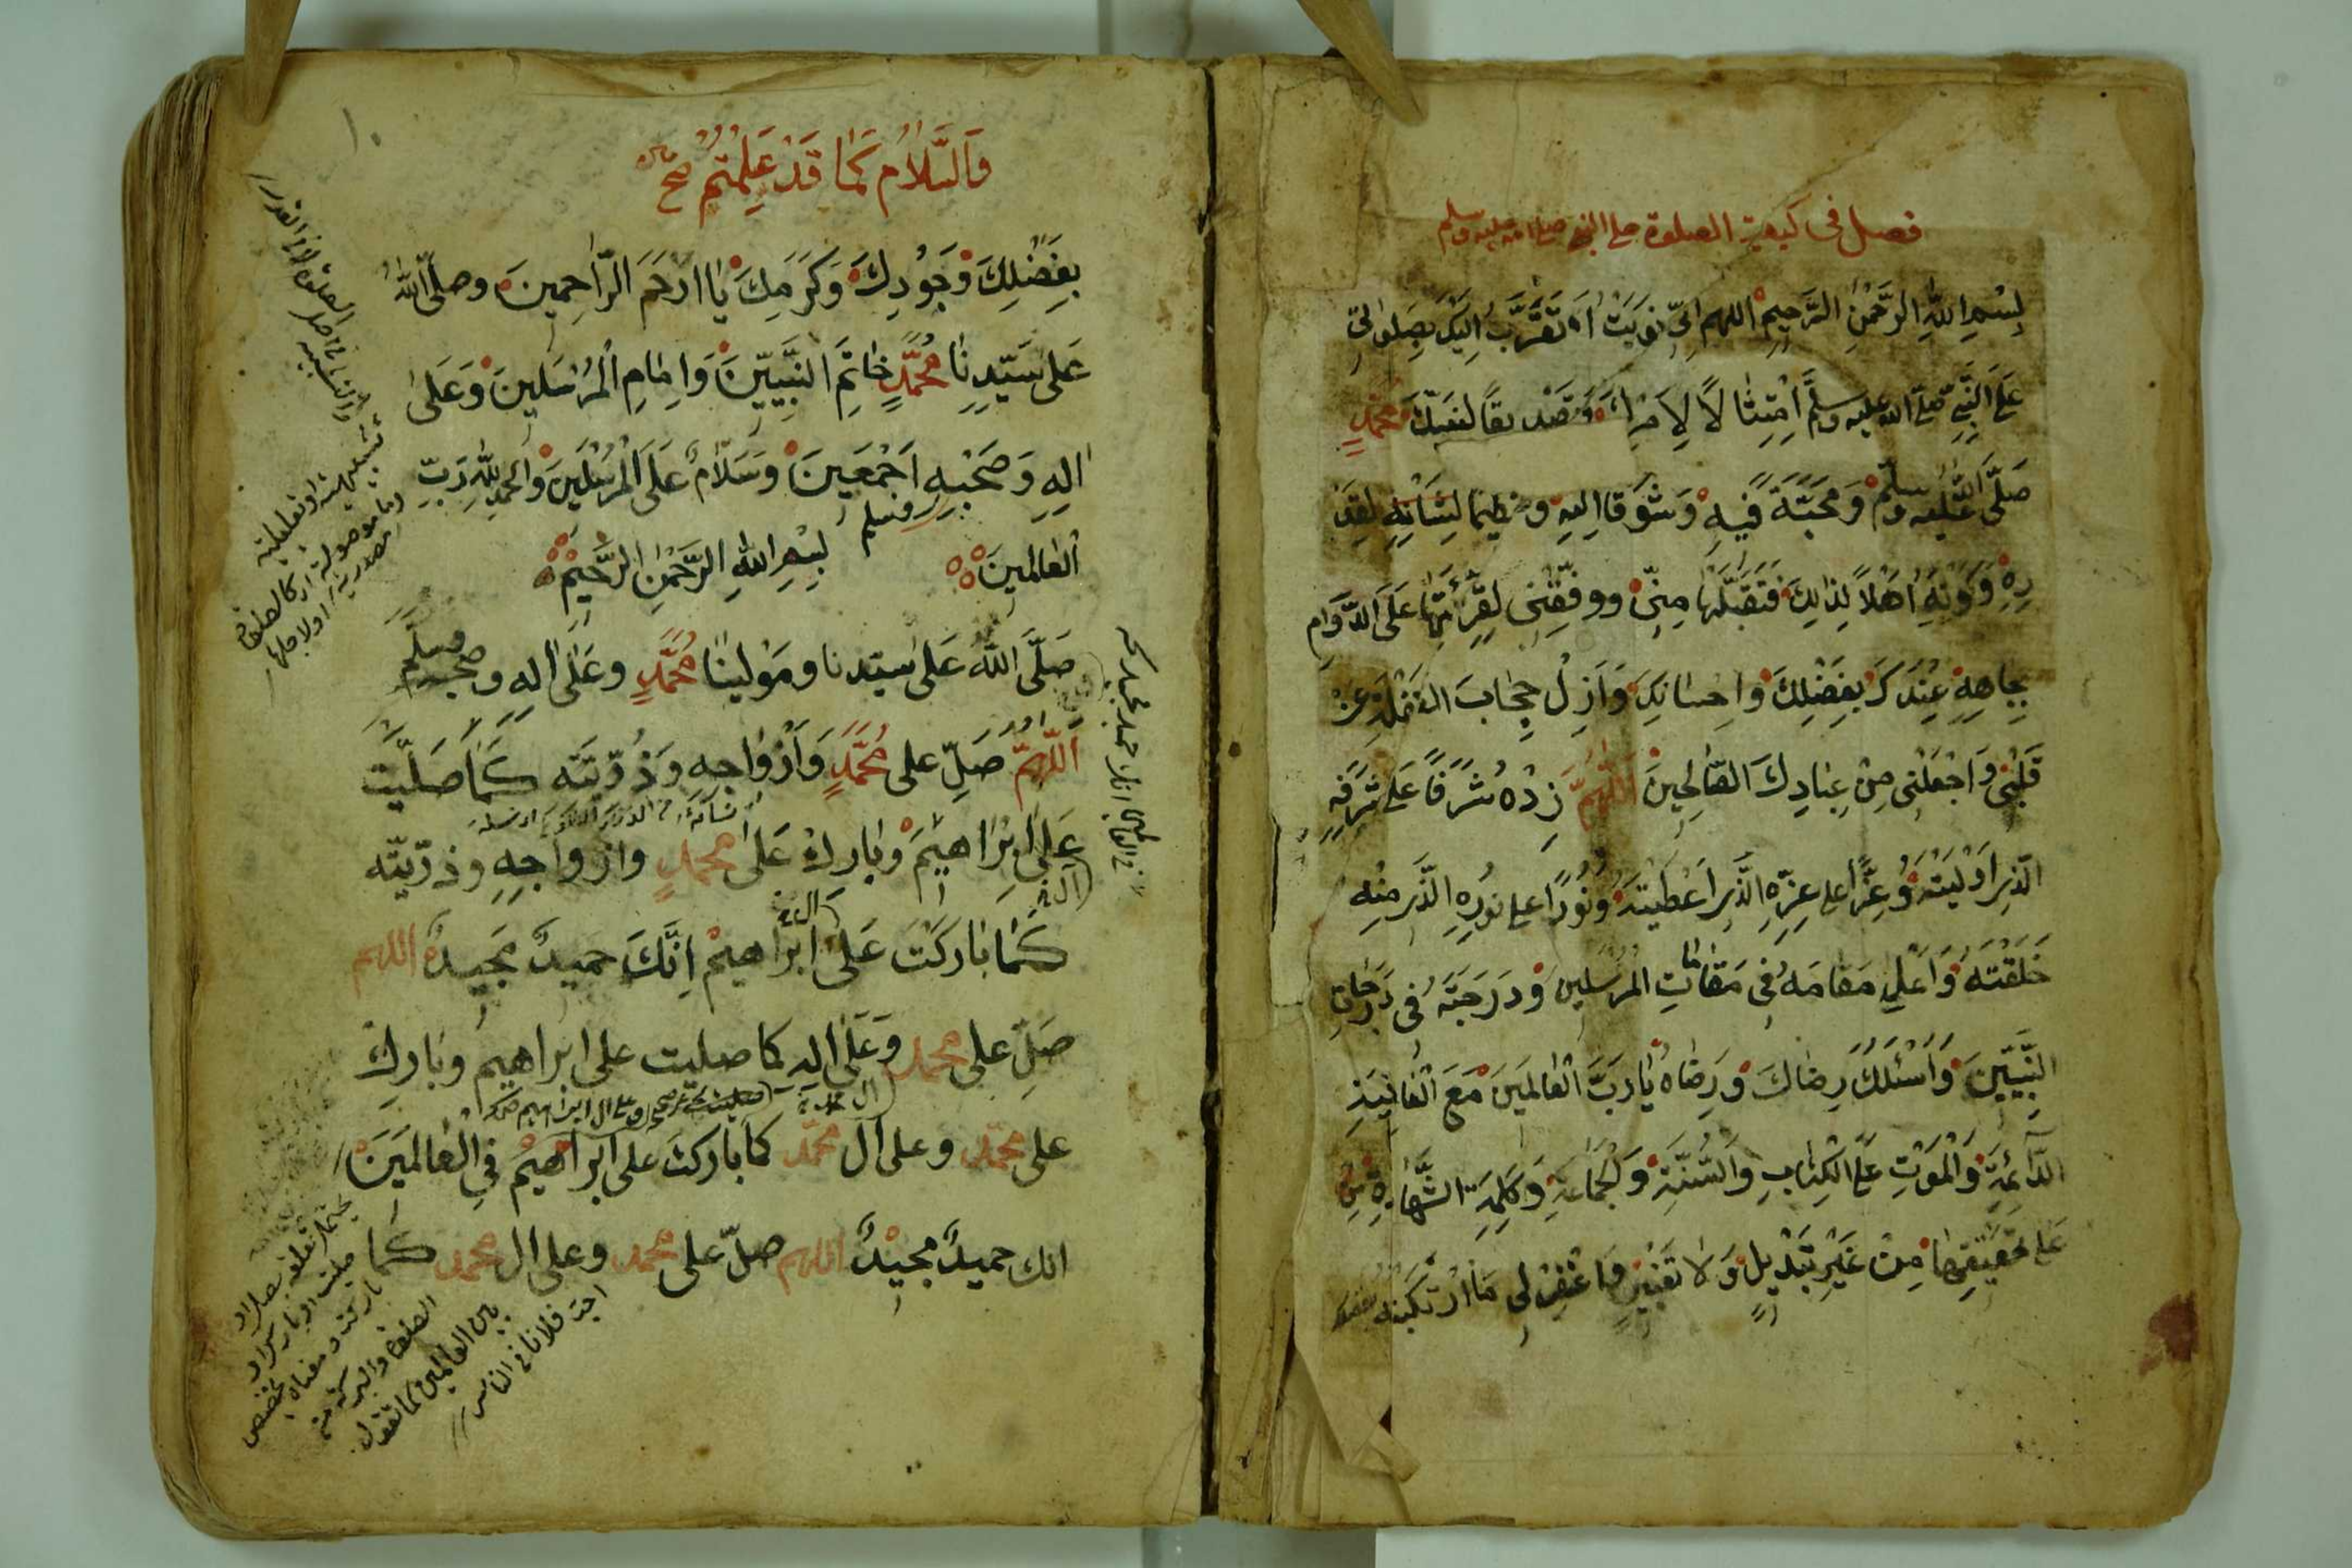 فصل في كيفية الصلوة على النبي صلى الله عليه وسلم
بِسْمِ اللهِ الرَّحْمٰنِ الرَّحِيمِ اللهم اِنّي نويت اَن تقرّب اليك بصلواتي
على النَّبِيِّ صلى الله عليه وسلم اِمْتِثالاً لِاَمْرِكَ وتصديقاً لنبيّك محمدٍ
صلّى الله عليه وسلم ومحبّةً فيه وشوقا اليه وتعظيما لشانه لقد
ره وكونه اهلاً لذلك فتقبّلها منّي ووفّقني لقرٱئتها على الدّوام
بجاهه عندك بفضلك واحسانك وازل حجاب الغفلة عن
قلبي واجعلني من عبادك الصّالحين اللّهمّ زده شرفاً على شرفه
الّذي اوليته وعزّاً على عزّه الّذي اعطيته ونوراً على نوره الّذي منه
خلقته واعل مقامه في مقامات المرسلين ودرجته في درجات
النبيّين واسئلك رضاك ورضاه يا ربّ العالمين مع العافية
الدّآئمة والموت على الكتاب والسّنّة والجماعة وكلمة الشّهادة
على تحقيقها من غير تبديل ولا تغيير واغفر لي ما ارتكبته بفضلك
والسّلام كما قد علمتم صح
بفضلك وجودك وكرمك يا ارحم الرّاحمين وصلّى الله
على سيّدنا محمّدٍ خاتم النّبيّين وامام المرسلين وعلى
اله وصحبه اجمعين وسلام على المرسلين والحمد لله ربّ
العالمين وسلم بسم الله الرّحمن الرّحيم
صلّى الله على سيّدنا ومولينا محمّدٍ وعلى اله وصحبه وسلّم
اللّهمّ صلّ على محمّدٍ وازواجه وذرّيّته كما صلّيت
على ابراهيم وبارك على محمدٍ وازواجه وذرّيّته
كما باركت على ابراهيم اِنّك حميدٌ مجيدٌ اللهم
صلّ على محمد وعلى اله كما صليت على ابراهيم وبارك
على محمّد وعلى آل محمّد كما باركت على ابراهيم في العالمين
انك حميدٌ مجيدٌ اللهم صلّ على محمد وعلى ال محمد كما
صليت او باركت او
باركت ومعناه
الصلوة والبركة
بين العالمين كما تقول
احبّ فلانا في الناس